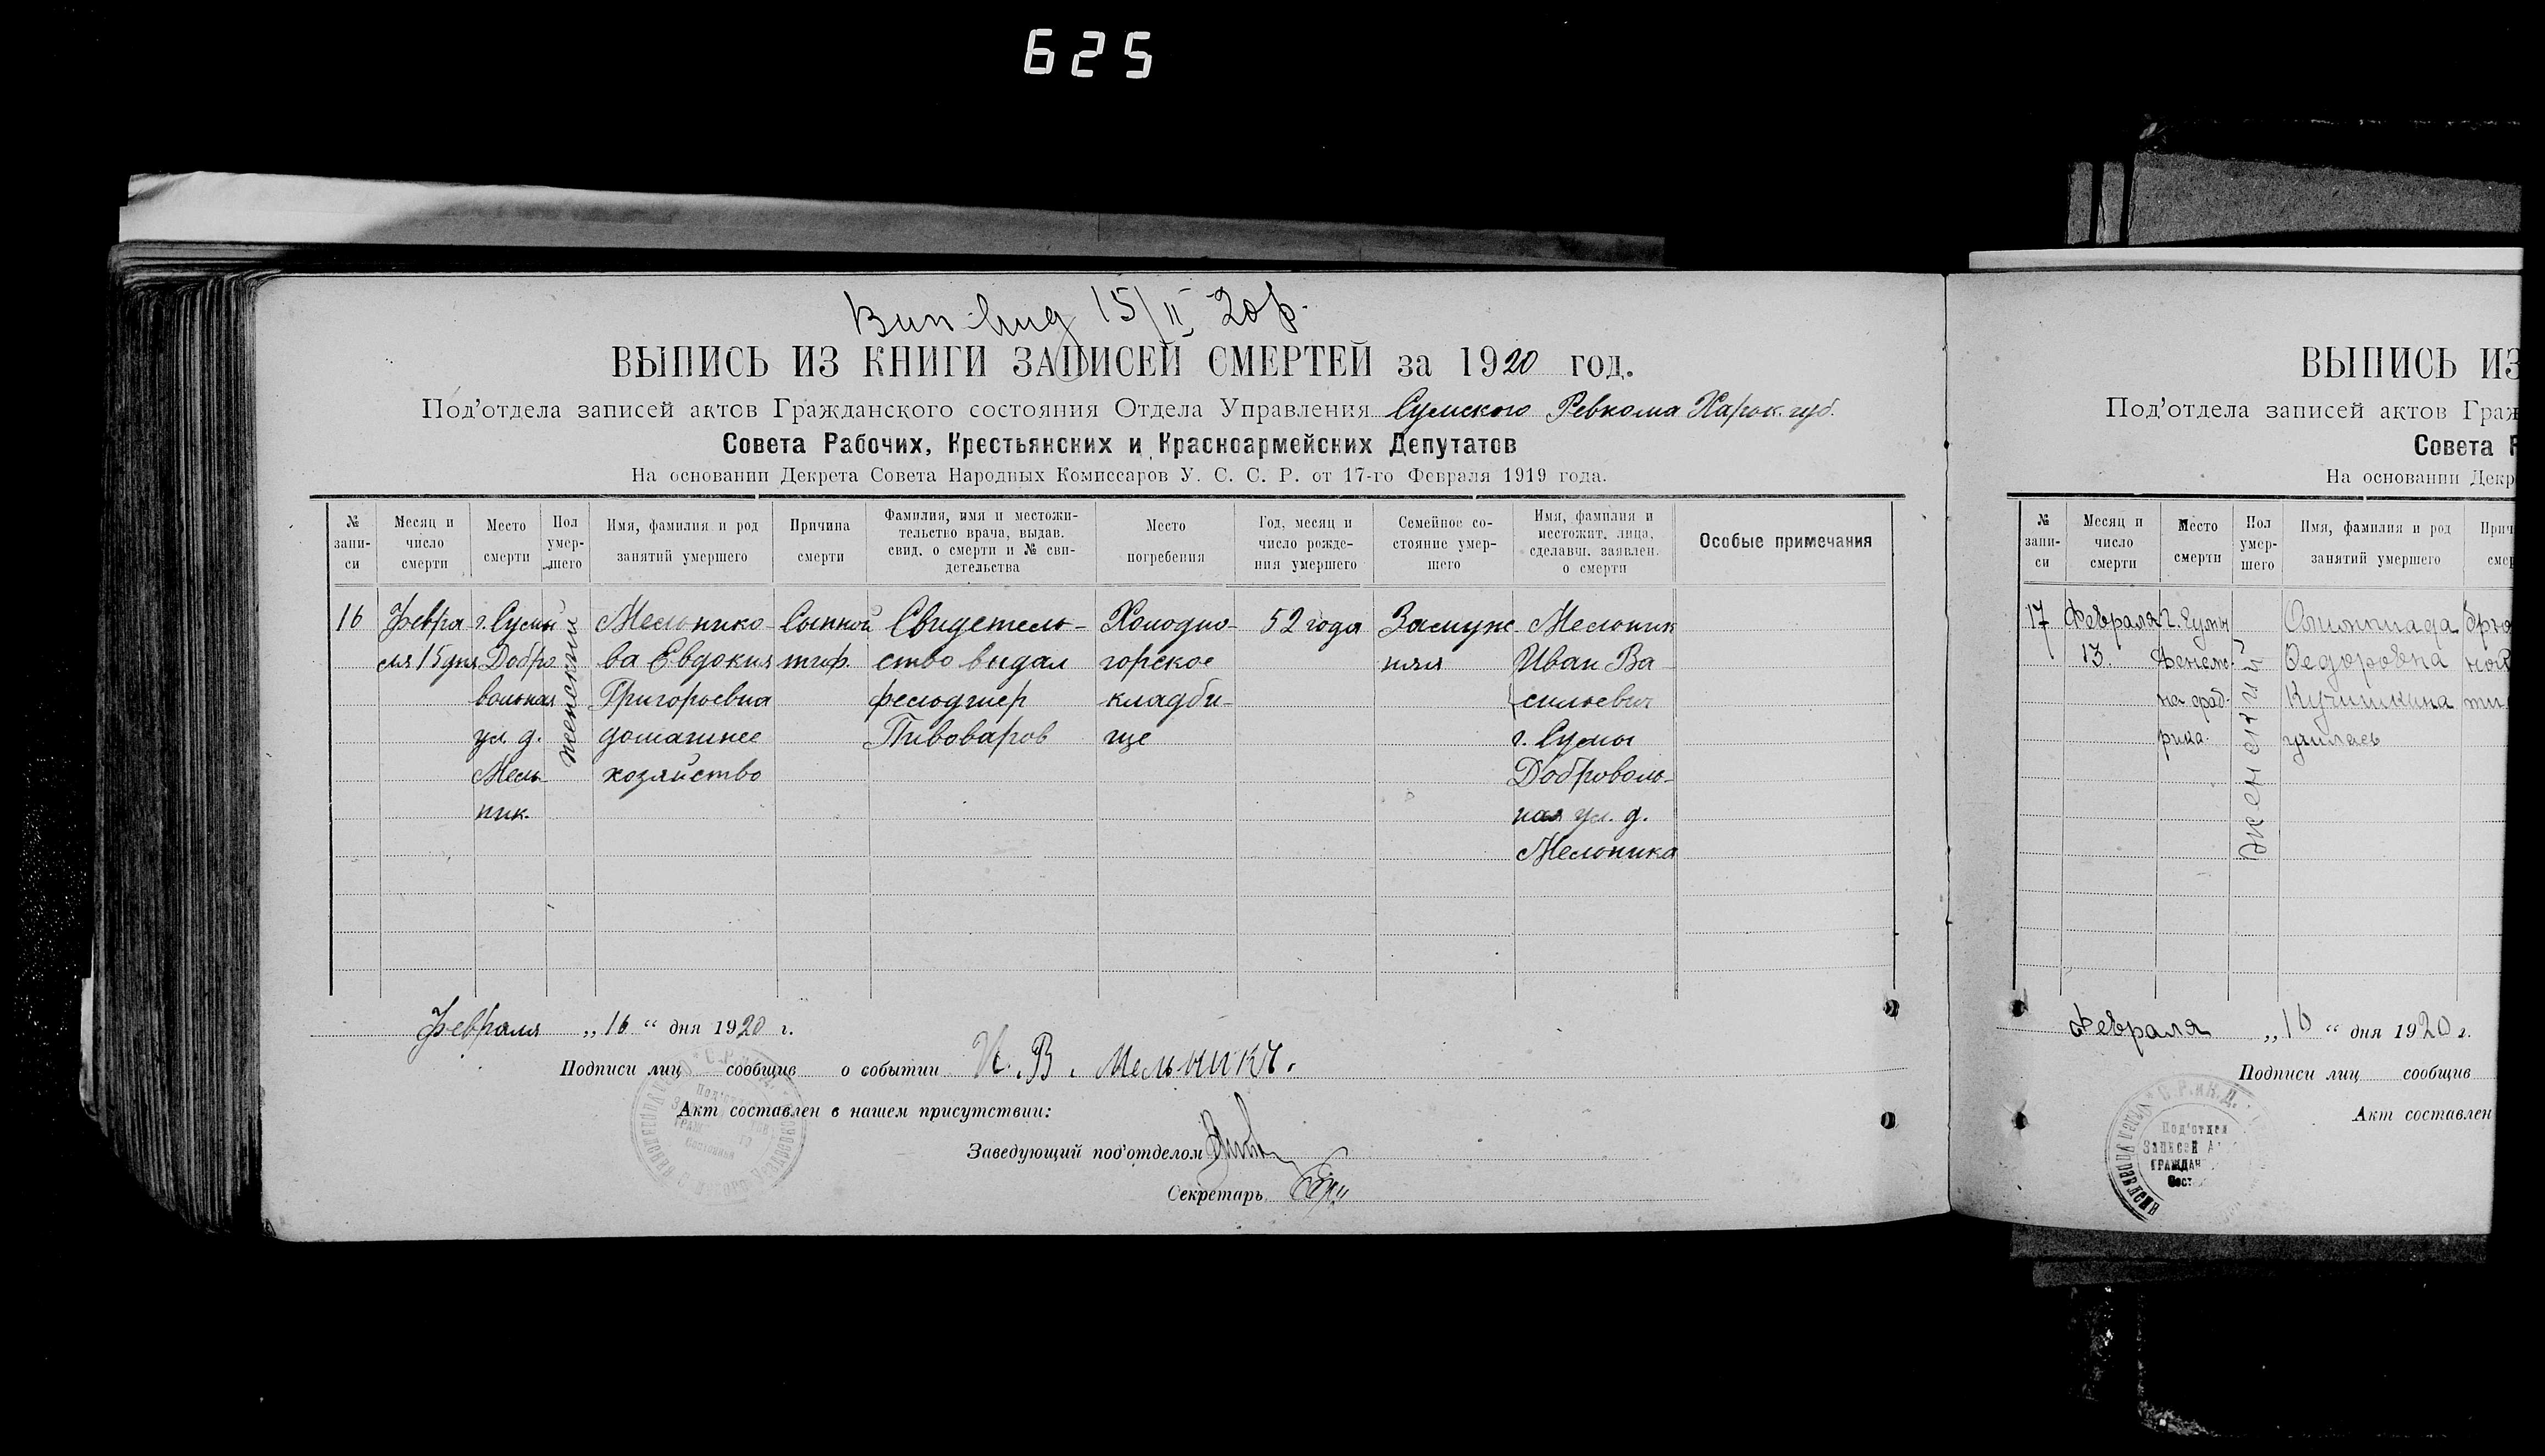 625
Вип-
15/II 20р.
ВЫПИСЬ ИЗ КНИГИ ЗАПИСЕЙ СМЕРТЕЙ за 1920 год.
Под'отдела записей актов Гражданского состояния Отдела Управления Сумского Ревкома Харьк. губ.
Совета Рабочих, Крестьянских и Красноармейских Депутатов
На основании Декрета Совета Народных Комиссаров У. С. С. Р. от 17-го Февраля 1919 года.
№
запи-
си
Месяц и
число
смерти
Место
смерти
Пол
умер-
шего
Имя, фамилия и род
занятий умершего
Причина
смерти
Фамилия, имя и местожи-
тельство врача, выдав.
свид. о смерти и № сви-
детельства
Место
погребения
Год, месяц и
число рожде-
ния умершего
Семейное со-
стояние умер-
шего
Имя, фамилия и
местожит. лица,
сделавш. заявлен.
о смерти
Особые примечания
16
Февра
ля 15 дня
г. Сумы
Добро
вольная
ул. д.
Мель-
ник.
женский
Мельнико-
ва Евдокия
Григорьевна
домашнее
хозяйство
Сыпной
тиф.
Свидетель-
ство выдал
фельдшер
Пивоваров
Холодно-
горское
кладби-
ще
52 года
Замуж-
няя
Мельник
Иван Ва-
сильевич
г. Сумы
Доброволь-
ная ул. д.
Мельника
Февраля „16“ дня 1920 г.
Подписи лиц сообщив о событии И. В. Мельникъ.
Акт составлен в нашем присутствии:
Заведующий под'отделом
Секретарь
ВЫПИСЬ ИЗ
Под'отдела записей актов Граж
Совета Р
На основании Декр
№
запи-
си
Месяц и
число
смерти
Место
смерти
Пол
умер-
шего
Имя, фамилия и род
занятий умершего
Прич
смер
17
Февраля
13.
г. Сумы
на фаб-
рика.
женский
Олимпиада
Федоровна
Кучишкина
училась
брю
ной
ти
Февраля „16“ дня 1920 г.
Подписи лиц сообщив
Акт составлен
С.Р. и К.Д.
Под'отдел
Записей А
ГРАЖДАН
Сост